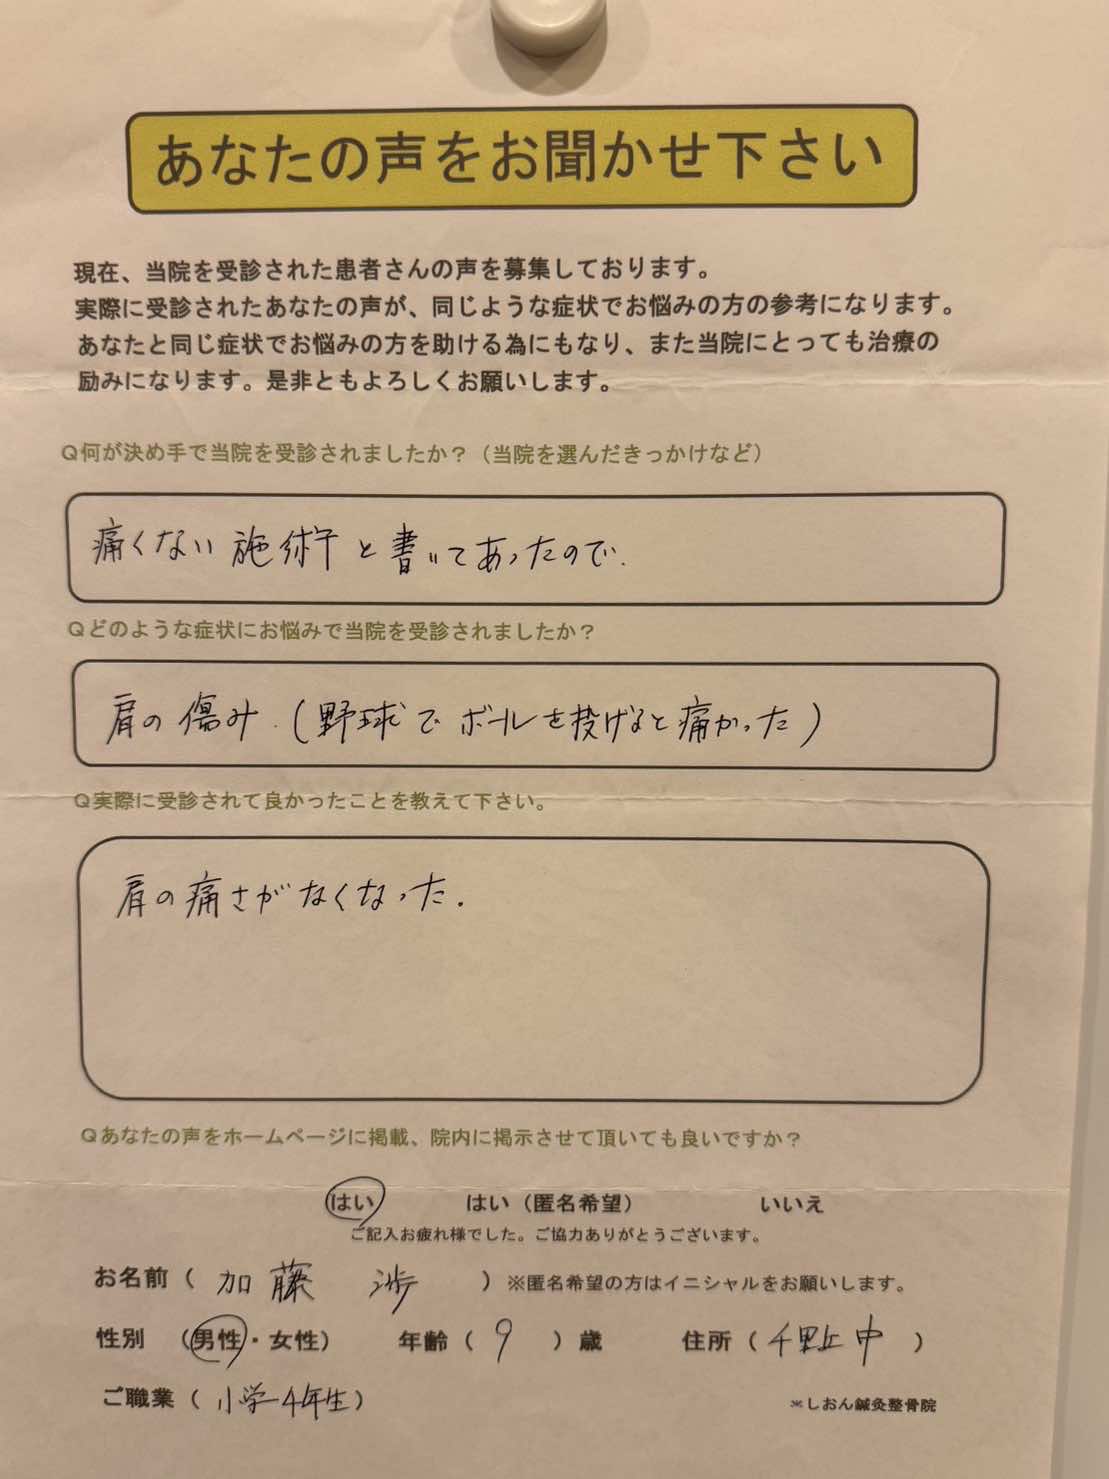 あなたの声をお聞かせ下さい
現在、当院を受診された患者さんの声を募集しております。
実際に受診されたあなたの声が、同じような症状でお悩みの方の参考になります。
あなたと同じ症状でお悩みの方を助ける為にもなり、また当院にとっても治療の
励みになります。是非ともよろしくお願いします。
Q何が決め手で当院を受診されましたか？（当院を選んだきっかけなど）
痛くない施術と書いてあったので.
Qどのような症状にお悩みで当院を受診されましたか？
肩の傷み.(野球でボールを投げると痛かった)
Q実際に受診されて良かったことを教えて下さい。
肩の痛さがなくなった.
Qあなたの声をホームページに掲載、院内に掲示させて頂いても良いですか？
はい はい（匿名希望） いいえ
ご記入お疲れ様でした。ご協力ありがとうございます。
お名前（ 加藤 渉 ）※匿名希望の方はイニシャルをお願いします。
性別 （男性・女性） 年齢（ 9 ）歳 住所（ 千野上中 ）
ご職業（ 小学4年生）
※しおん鍼灸整骨院